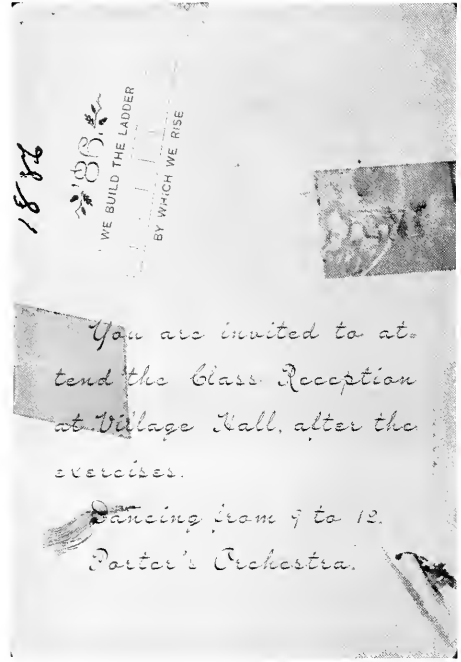 1886
'86.
WE BUILD THE LADDER
BY WHICH WE RISE
You are invited to at-
tend the Class Reception
at Village Hall, after the
exercises.
Dancing from 9 to 12.
Porter's Orchestra.